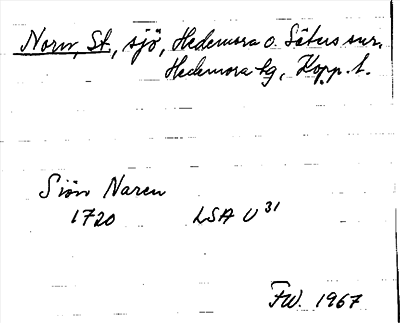 Norn, St., sjö, Hedemora o. Säters snr,
Hedemora tg, Kopp. l.
Siön Naren
1720 LSA U 31
FW. 1967